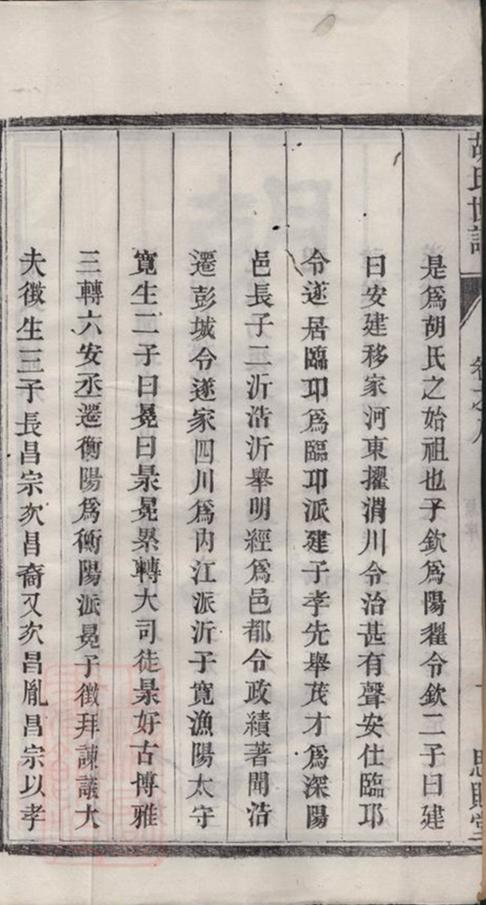 胡氏世譜
是爲胡氏之始祖也子欽爲陽翟令欽二子曰建
曰安建移家河東擢淯川令治甚有聲安仕臨邛
令遂居臨邛爲臨邛派建子孝先舉茂才爲深陽
邑長子二沂浩沂舉明經爲邑都令政績著聞浩
遷彭城令遂家四川爲內江派沂子寬漁陽太守
寬生二子曰晃曰景晃累轉大司徒景好古博雅
三轉六安丞遷衡陽爲衡陽派晃子徵拜諫議大
夫徵生三子長昌宗次昌裔又次昌胤昌宗以孝